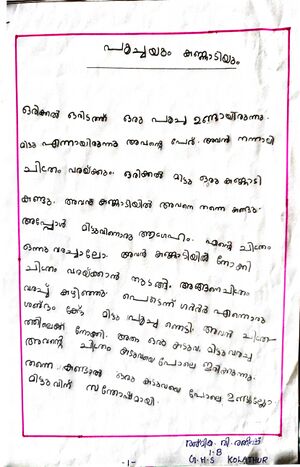 പൂച്ചയും കണ്ണാടിയും
ഒരിക്കൽ ഒരിടത്ത് ഒരു പൂച്ച ഉണ്ടായിരുന്നു.
മിട്ടു എന്നായിരുന്നു അവന്റെ പേര്. അവൻ നന്നായി
ചിത്രം വരയ്ക്കും. ഒരിക്കൽ മിട്ടു ഒരു കണ്ണാടി
കണ്ടു. അവൻ കണ്ണാടിയിൽ അവനെ തന്നെ കണ്ടു.
അപ്പോൾ മിട്ടുവിനൊരു ആഗ്രഹം. എന്റെ ചിത്രം
ഒന്നു വരച്ചാലോ. അവൻ കണ്ണാടിയിൽ നോക്കി
ചിത്രം വരയ്ക്കാൻ തുടങ്ങി. അങ്ങനെ ചിത്രം
വരച്ച് കഴിഞ്ഞു. പെട്ടെന്ന് ഗർർർ എന്നൊരു
ശബ്ദം കേട്ടു. മിട്ടു പൂച്ച ഞെട്ടി. അവൻ ചിത്ര-
ത്തിലേക്ക് നോക്കി. അതാ ഒരു കടുവ. മിട്ടു വരച്ച
അവന്റെ ചിത്രം കടുവയെ പോലെ ഇരിക്കുന്നു.
തന്നെ കണ്ടാൽ ഒരു കടുവയെ പോലെ ഉണ്ടല്ലോ.
മിട്ടുവിന് സന്തോഷമായി.
വി.
1-B
G.H.S KOLATHUR
-1-